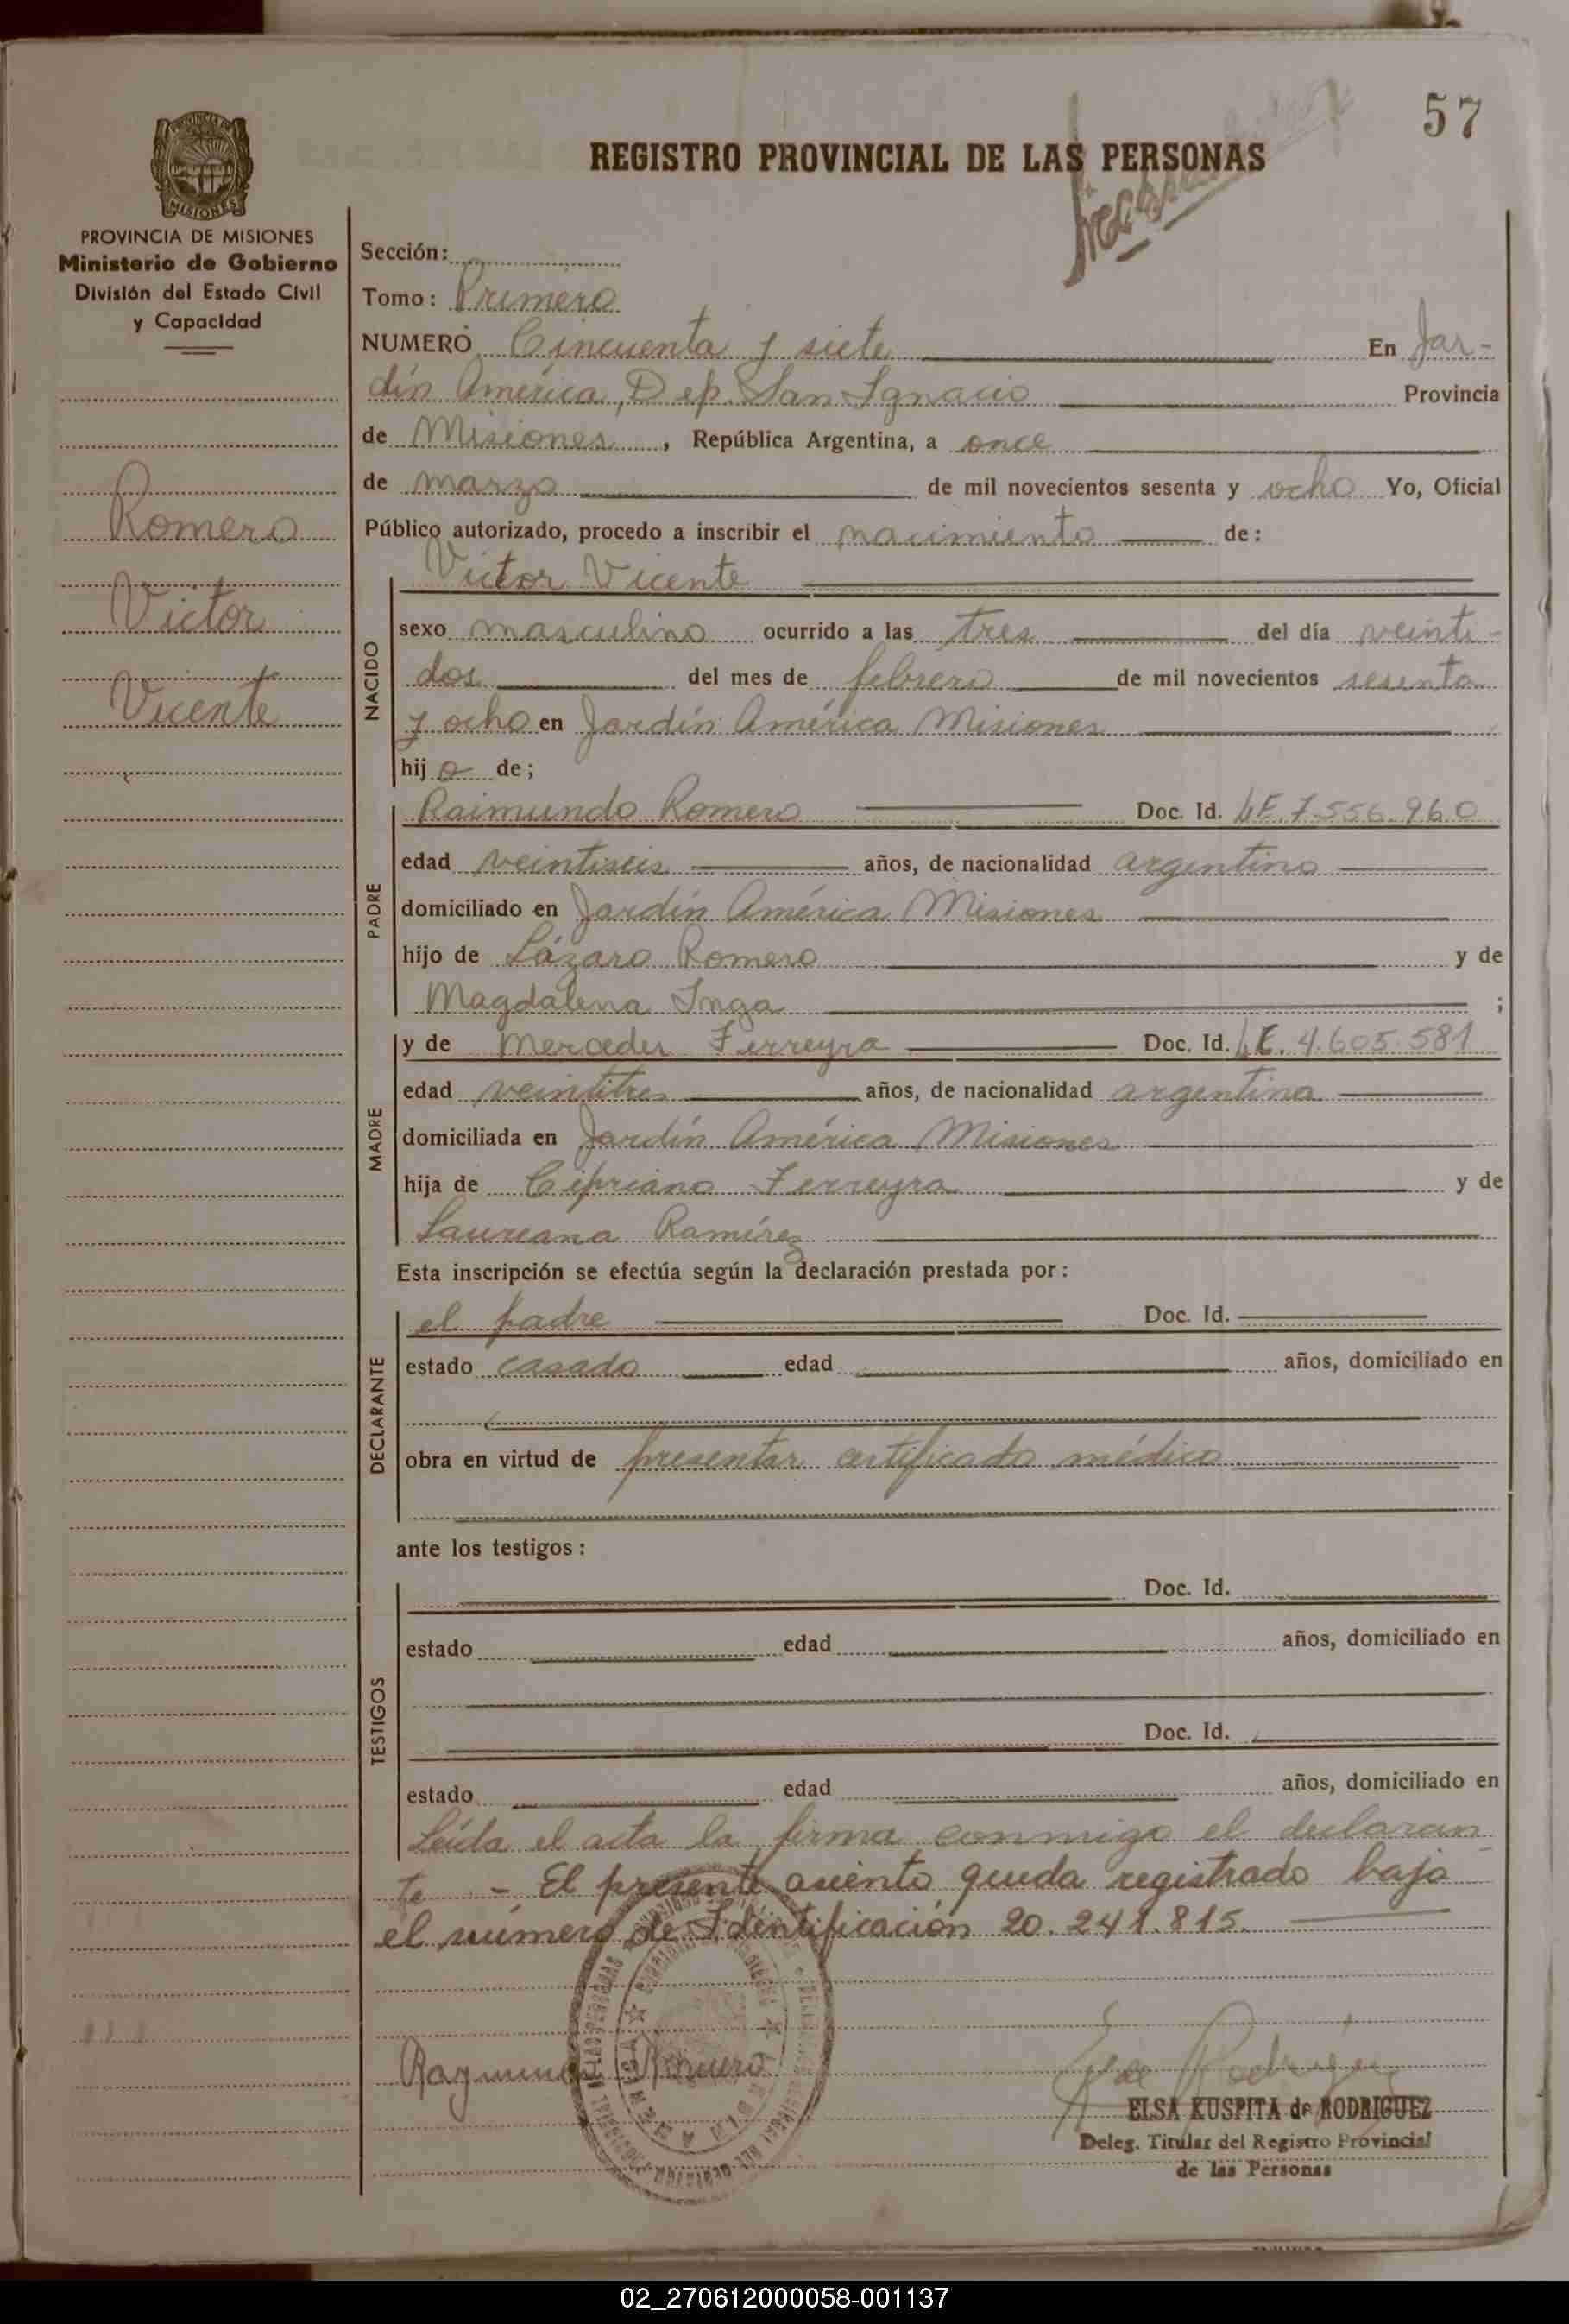 57
REGISTRO PROVINCIAL DE LAS PERSONAS
PROVINCIA DE MISIONES
Ministerio de Gobierno
División del Estado Civil
y Capacidad
Romero
Victor
Vicente
Sección:
Tomo: Primero
NUMERO Cincuenta y siete En Jar-
dín América, Dep. San Ignacio Provincia
de Misiones, República Argentina, a once
de marzo de mil novecientos sesenta y ocho Yo, Oficial
Público autorizado, procedo a inscribir el nacimiento de:
Victor Vicente
NACIDO
sexo masculino ocurrido a las tres del día veinti-
dos del mes de febrero de mil novecientos sesenta
y ocho en Jardín América Misiones
hijo de;
PADRE
Raimundo Romero Doc. Id. LE. 7.556.960
edad veintiseis años, de nacionalidad argentino
domiciliado en Jardín América Misiones
hijo de Lázaro Romero y de
Magdalena Inga ;
MADRE
y de Mercedes Ferreyra Doc. Id. LC. 4.605.581
edad veintitres años, de nacionalidad argentina
domiciliada en Jardín América Misiones
hija de Cipriano Ferreyra y de
Laureana Ramírez
Esta inscripción se efectúa según la declaración prestada por:
DECLARANTE
el padre Doc. Id.
estado casado edad años, domiciliado en
obra en virtud de presentar certificado médico
ante los testigos:
TESTIGOS
Doc. Id.
estado edad años, domiciliado en
Doc. Id.
estado edad años, domiciliado en
Leída el acta la firma conmigo el declaran
te - El presente asiento queda registrado bajo
el número de Identificación 20.241.815.
Raymundo Romero
Elsa Rodriguez
ELSA KUSPITA de RODRIGUEZ
Deleg. Titular del Registro Provincial
de las Personas
02_270612000058-001137